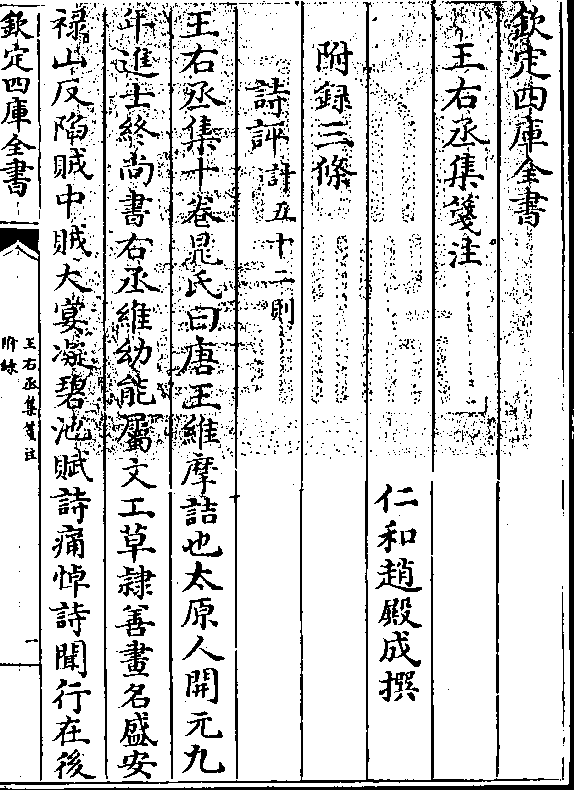 欽定四庫全書
王右丞集箋注
仁和趙殿成撰
附録三條
詩評計五十二則
王右丞集十卷晁氏曰唐王維摩詰也太原人開元九
年進士終尚書右丞維幼能屬文工草隷善畫名盛安
禄山反陷賊中賊大宴凝碧池賦詩痛悼詩聞行在後
欽定四庫全書
王右丞集箋注
附録
一